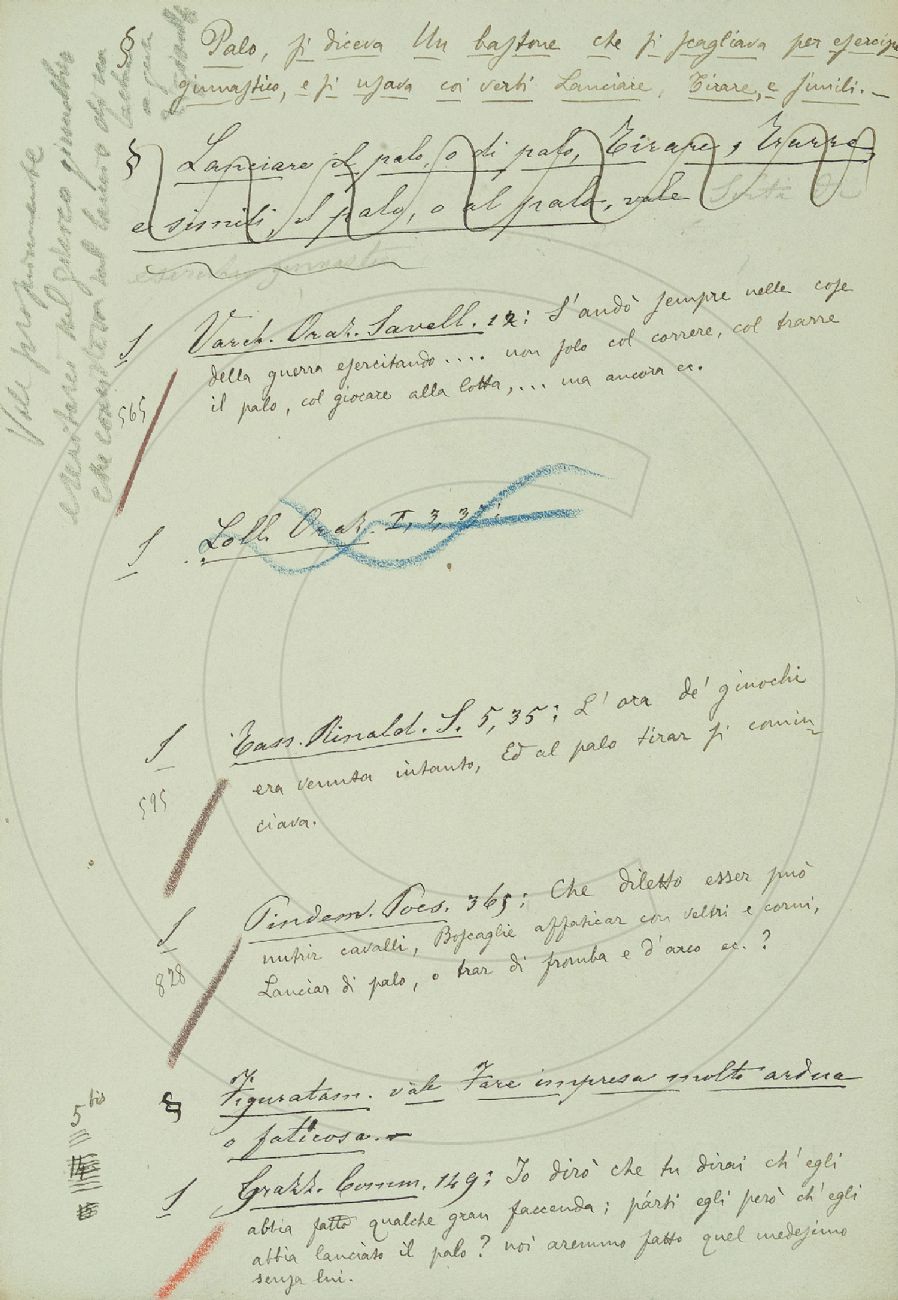 § Palo, si diceva Un bastone che si scagliava per esercizio
ginnastico, e si usava coi verbi Lanciare, Tirare, e simili. —
§ Lanciare il palo, o di palo, Tirare, Trarre,
e simili, il palo, o al palo, vale
esercizio ginnastico
Vale propriamente
esercitarsi nel giuoco ginnastico
che consisteva nel lancio di un
S Varch. Oraz. Savell. 12: S'andò sempre nelle cose
della guerra esercitando.... non solo col correre, col trarre
il palo, col giocare alla lotta,... ma ancora ec.
565
S Loll. Oraz. I, 3, 37:
S Tass. Rinald. S. 5, 35: L' ora de' giuochi
era venuta intanto, Ed al palo tirar si comin-
ciava.
595
S Pindem. Poes. 365: Che diletto esser può
nutrir cavalli, Boscaglie affaticar con veltri e corni,
Lanciar di palo, o trar di fromba e d'arco ec.?
828
5 bis
§ Figuratam. vale Fare impresa molto ardua
o faticosa. —
S Grazz. Comm. 149: Io dirò che tu dirai ch' egli
abbia fatto qualche gran faccenda; párti egli però ch' egli
abbia lanciato il palo? noi aremmo fatto quel medesimo
senza lui.